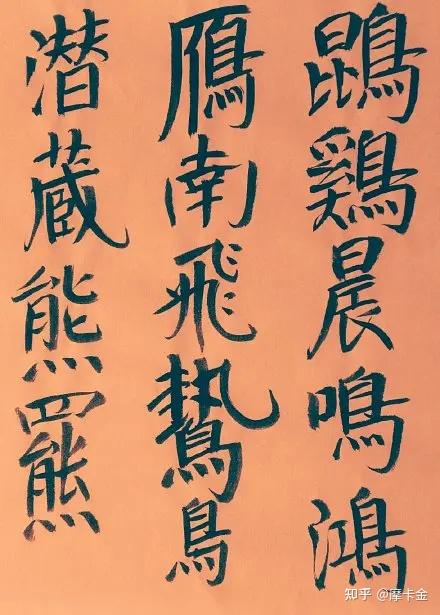 鵾鷄晨鳴鴻
鴈南飛鷙鳥
潛藏熊羆
知乎 @摩卡金